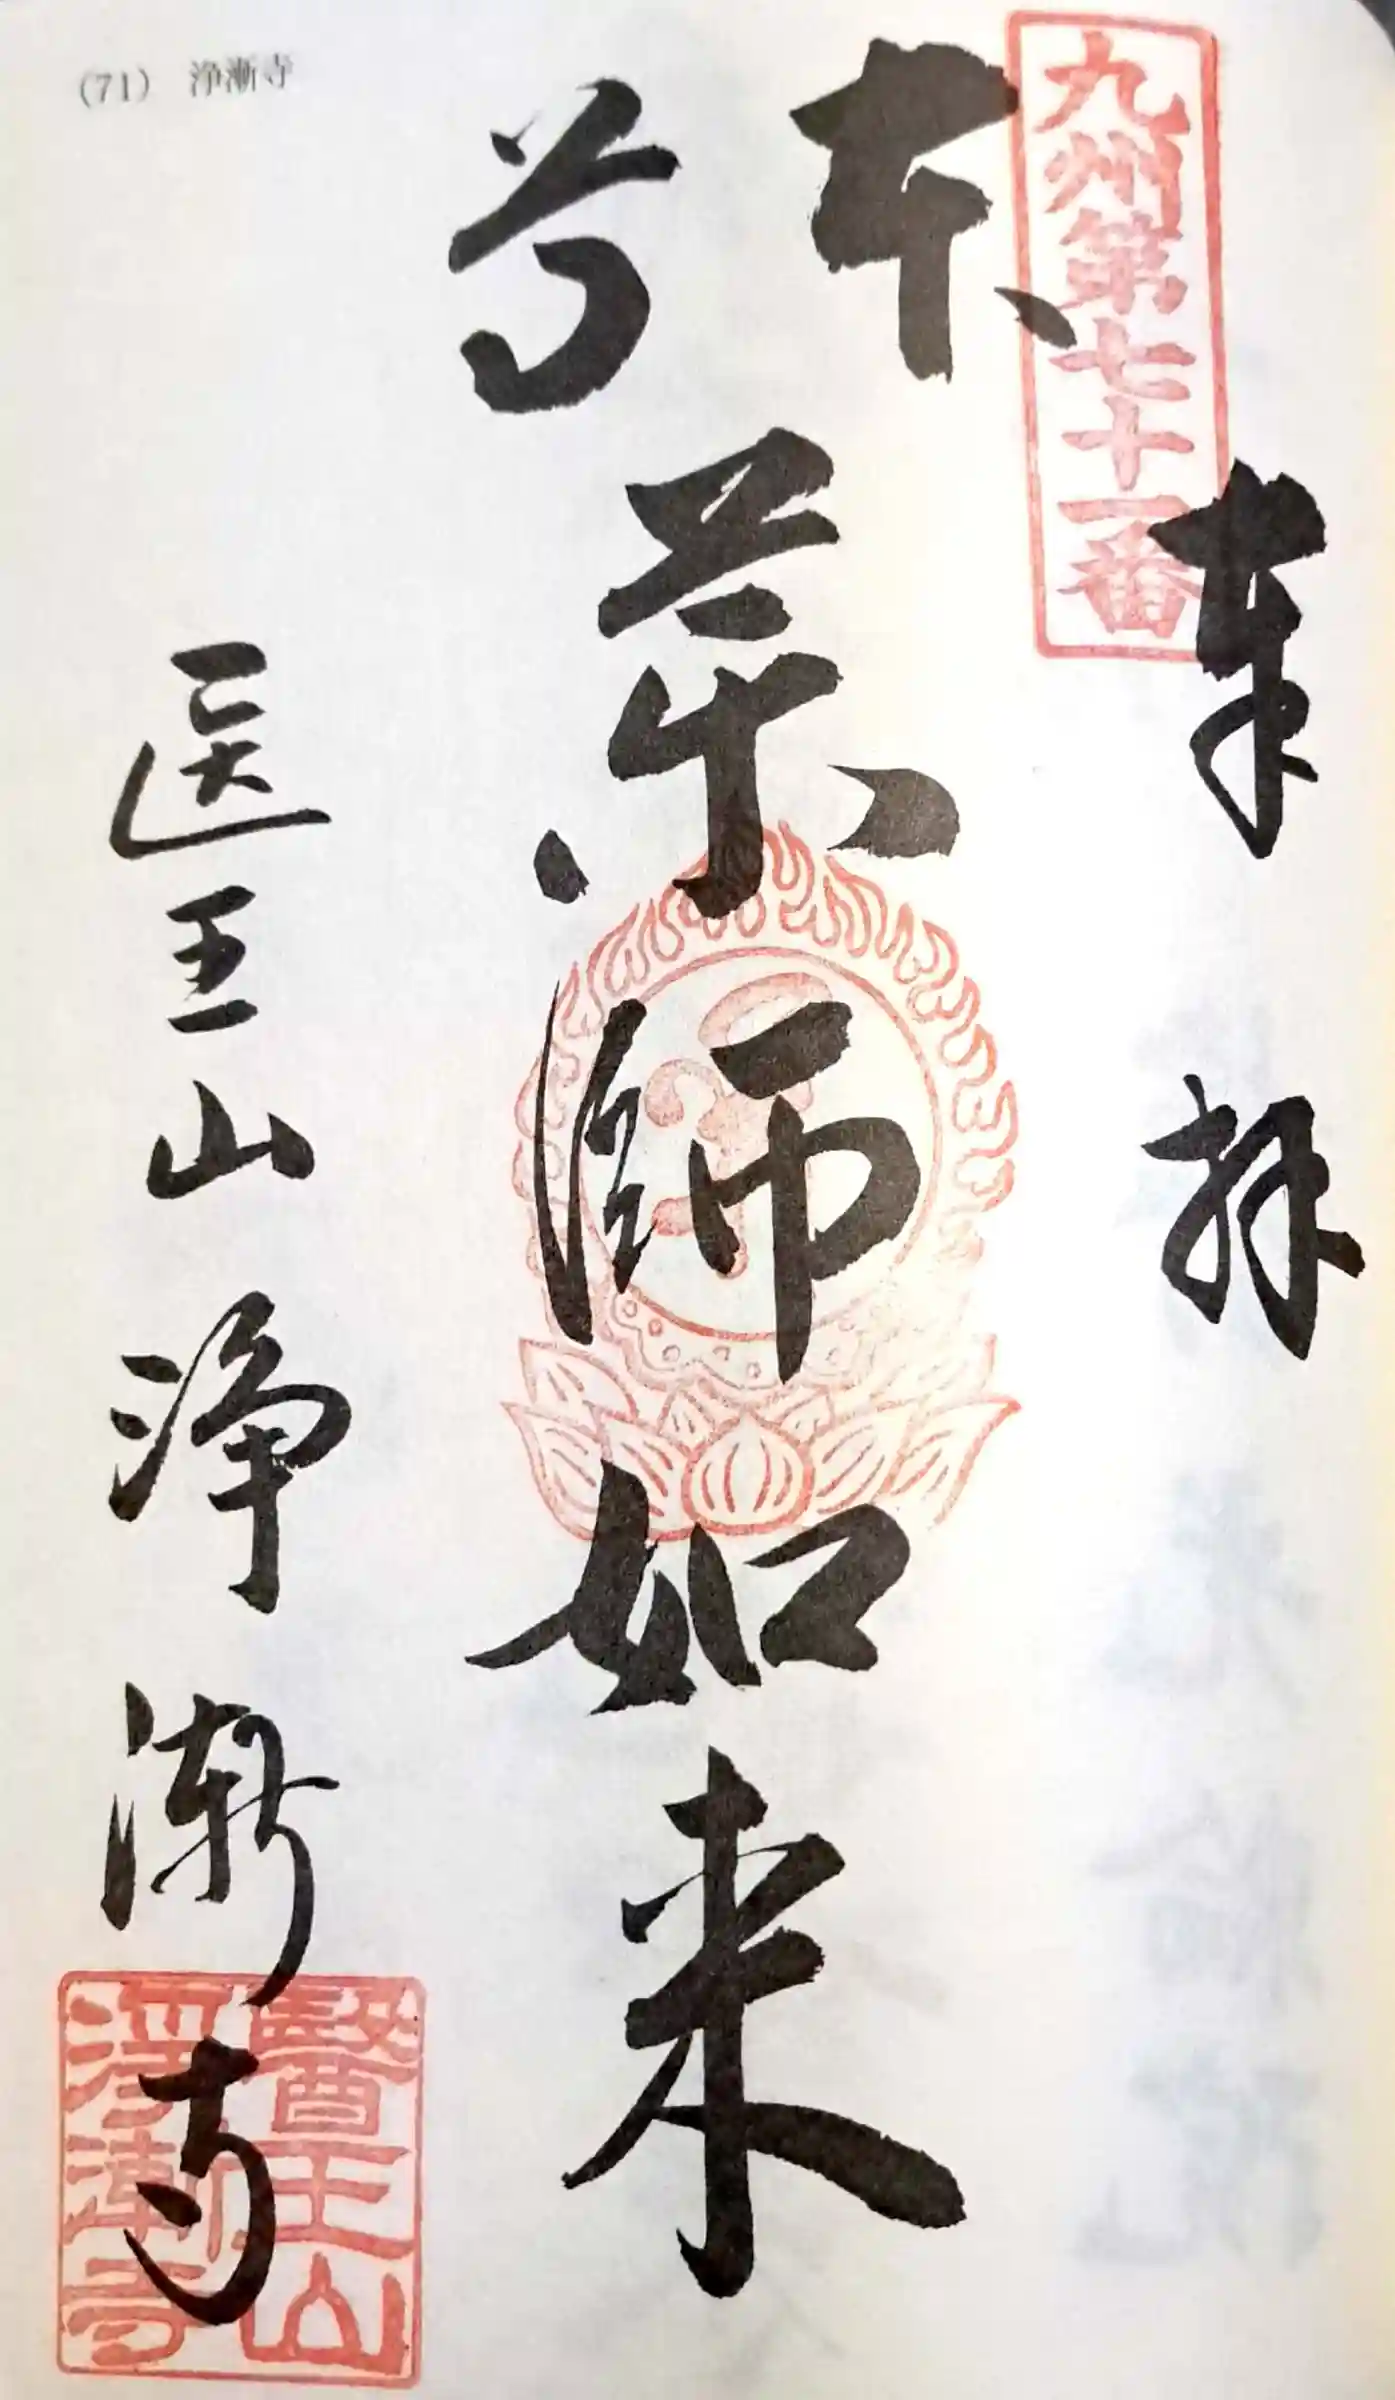 (71) 浄漸寺
九州第七十一番
奉拝
本尊
薬師如来
医王山浄漸寺
醫王山
浄漸寺